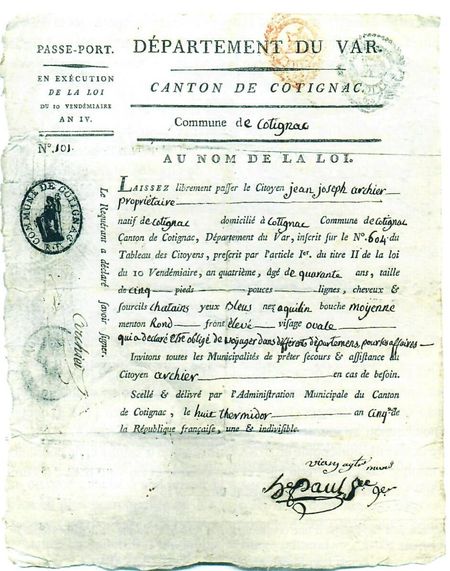 PASSE-PORT.
EN EXÉCUTION
DE LA LOI
DU 10 VENDÉMIAIRE
AN IV.
N°. 101.
DÉPARTEMENT DU VAR.
CANTON DE COTIGNAC.
Commune de Cotignac
AU NOM DE LA LOI.
LAISSEZ librement passer le Citoyen jean joseph archier
propriétaire
natif de cotignac domicilié à Cotignac Commune de cotignac
Canton de Cotignac, Département du Var, inscrit sur le N°. 604 du
Tableau des Citoyens, prescrit par l'article Ier. du titre II de la loi
du 10 Vendémiaire, an quatrième, âgé de quarante ans, taille
de cinq pieds pouces lignes, cheveux &
sourcils chatains yeux Bleus nez aquilin bouche moyenne
menton Rond front élevé visage ovale
qui a declaré être obligé de voyager dans différents départemens, pour ses affaires
Invitons toutes les Municipalités de prêter secours & assistance au
Citoyen archier en cas de besoin.
Scellé & délivré par l'Administration Municipale du Canton
de Cotignac, le huit thermidor an cinq de
la République française, une & indivisible.
COMMUNE DE COTIGNAC
R.F.
Le Requérant a déclaré savoir signer.
Archier